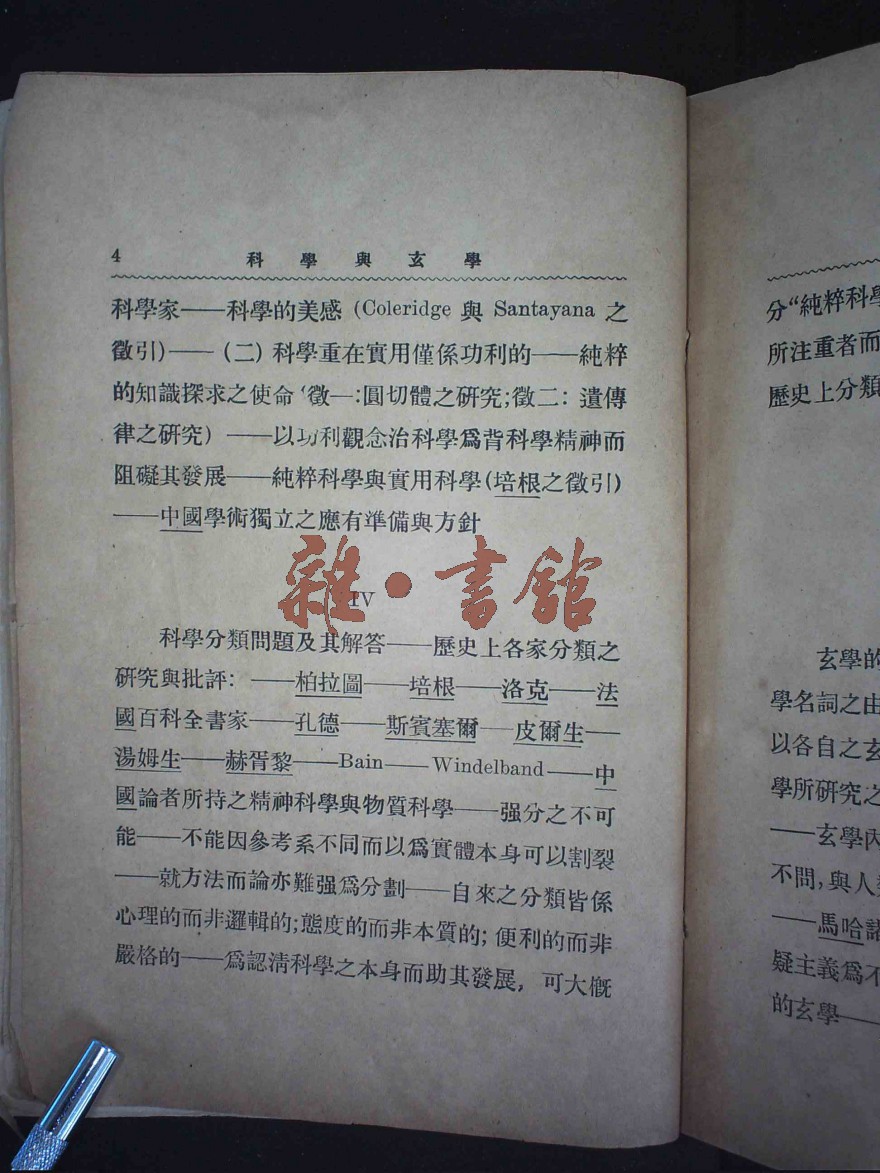 4 科學與玄學
科學家——科學的美感 (Coleridge 與 Santayana 之
徵引)——(二) 科學重在實用僅係功利的——純粹
的知識探求之使命 (徵一:圓切體之研究;徵二: 遺傳
律之研究) ——以功利觀念治科學爲背科學精神而
阻礙其發展——純粹科學與實用科學(培根之徵引)
——中國學術獨立之應有準備與方針
IV
科學分類問題及其解答——歷史上各家分類之
研究與批評: ——柏拉圖——培根——洛克——法
國百科全書家——孔德——斯賓塞爾——皮爾生——
湯姆生——赫胥黎——Bain——Windelband——中
國論者所持之精神科學與物質科學——强分之不可
能——不能因參考系不同而以爲實體本身可以割裂
——就方法而論亦難强爲分劃——自來之分類皆係
心理的而非邏輯的;態度的而非本質的; 便利的而非
嚴格的——爲認淸科學之本身而助其發展, 可大槪
雜·書館
分“純粹科學
所注重者而
歷史上分類
玄學的
學名詞之由
以各自之玄
學所研究之
——玄學內
不問,與人類
——馬哈諾
疑主義爲不
的玄學——